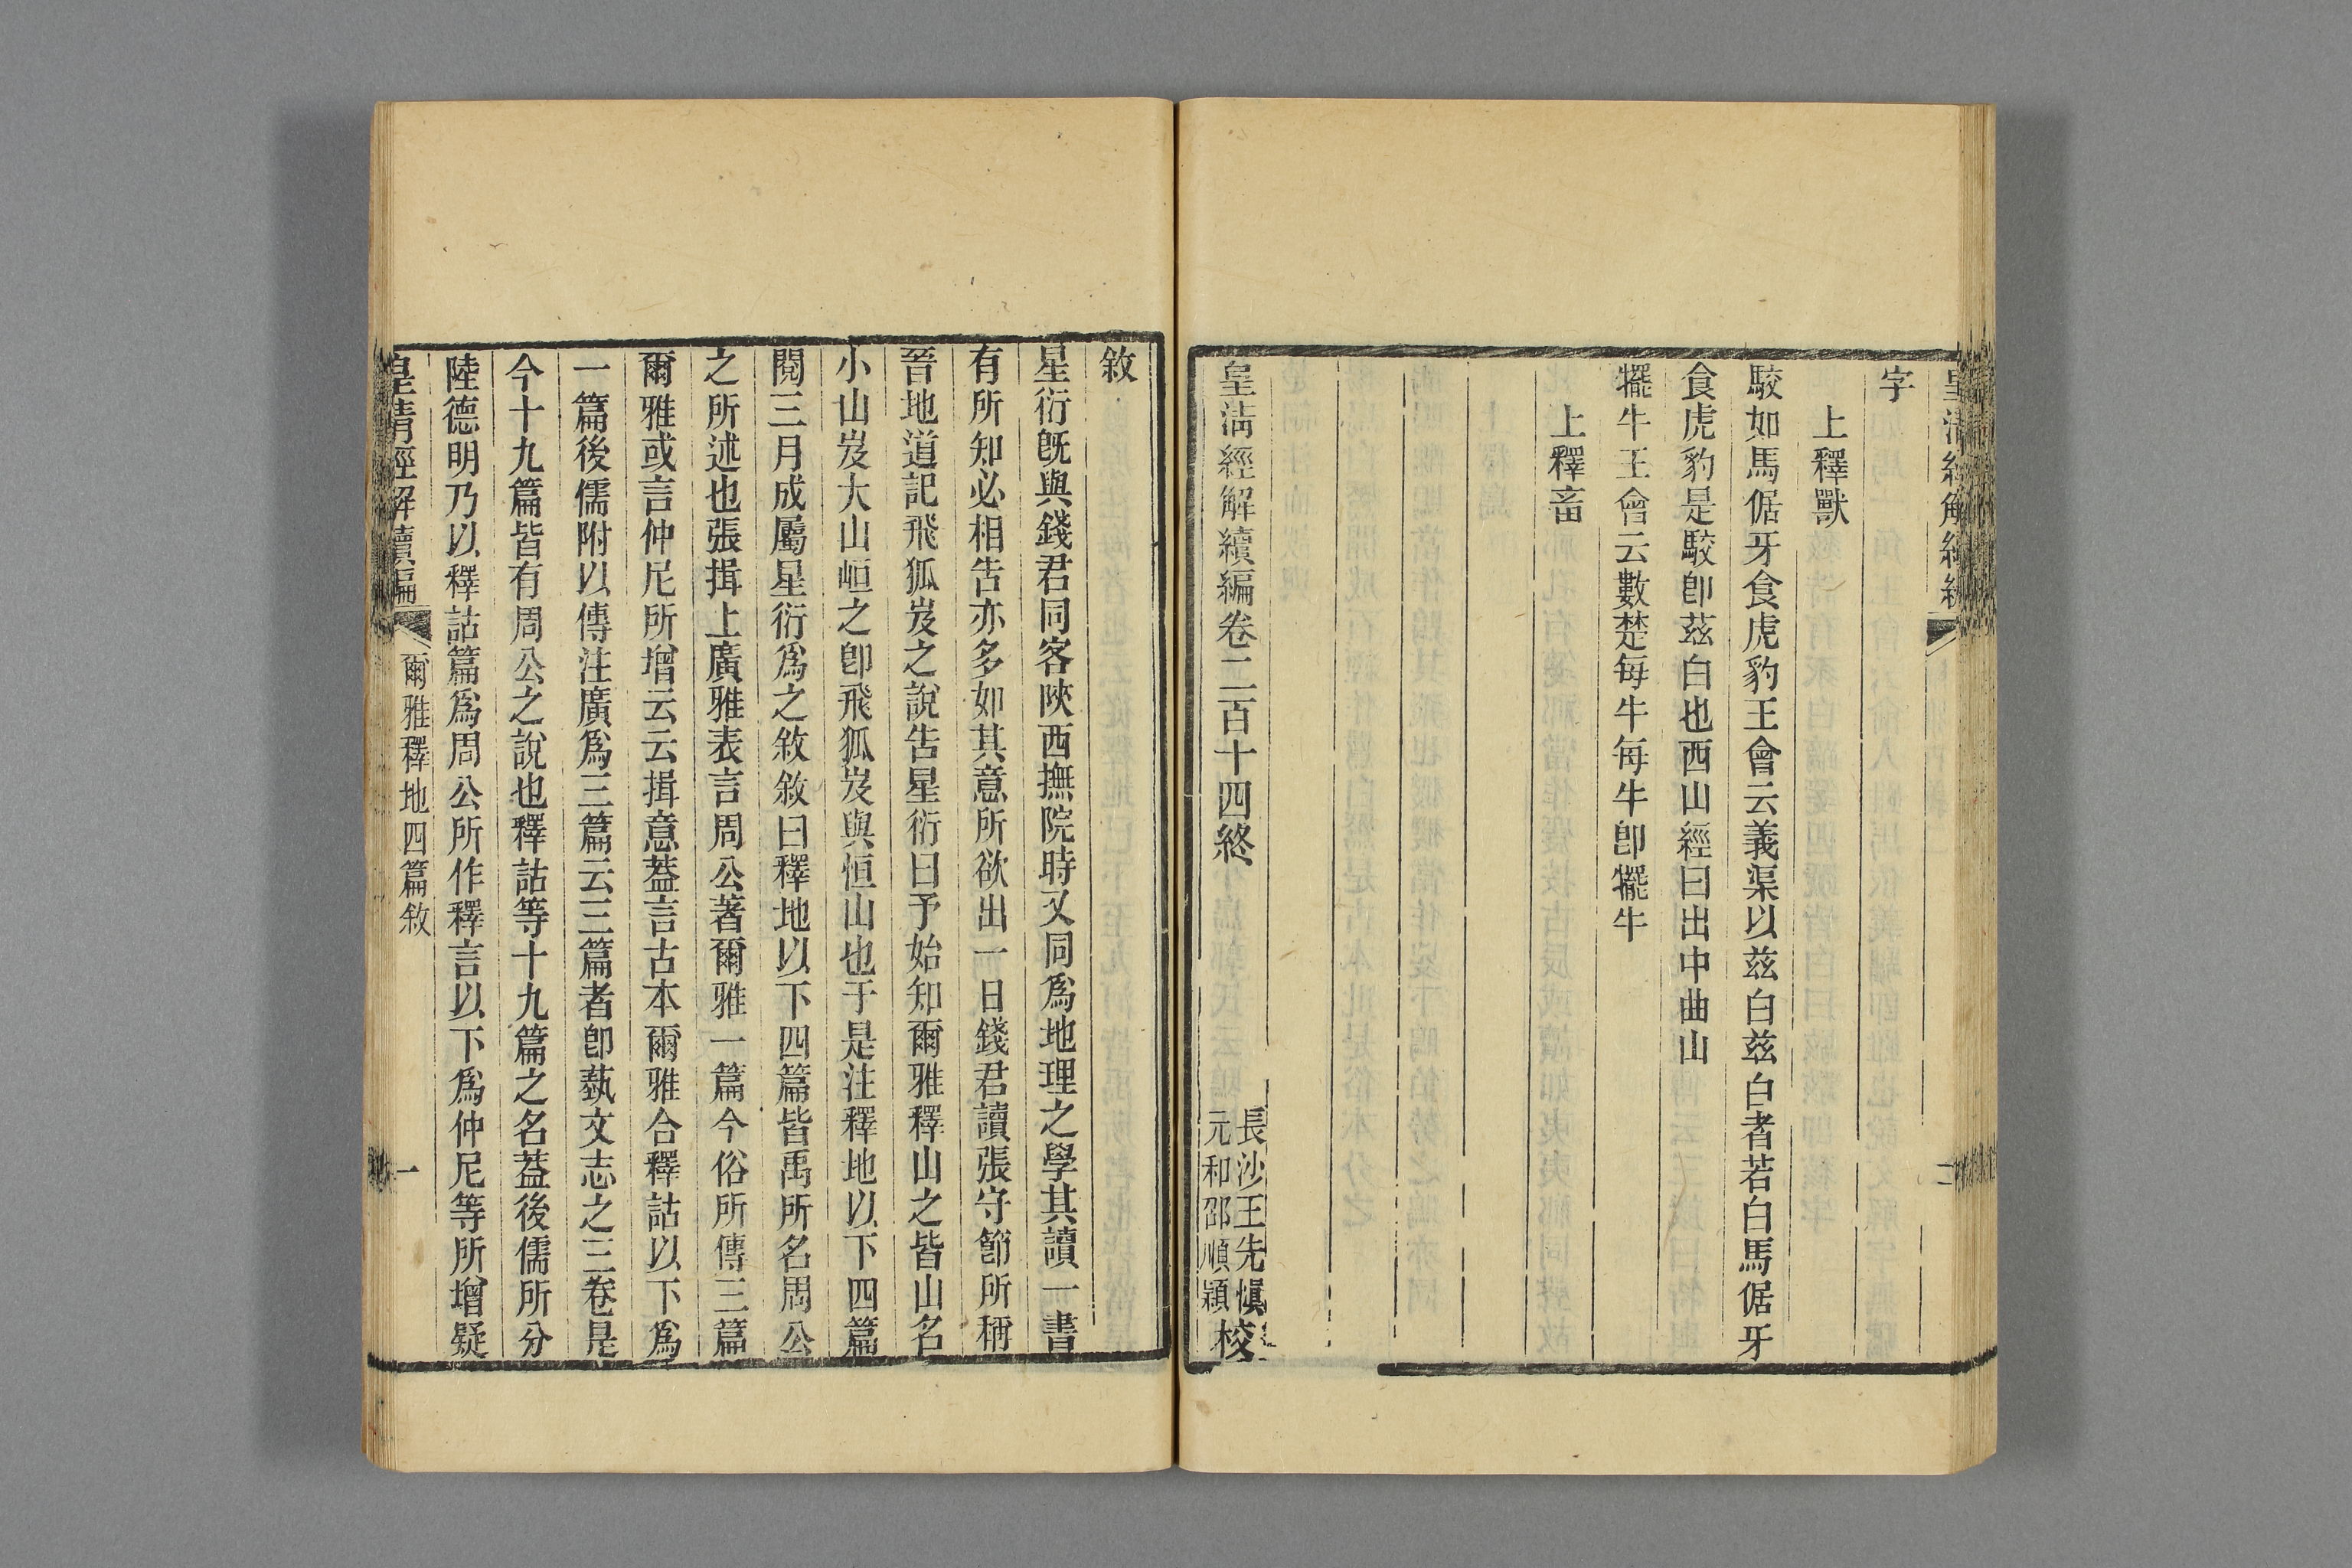 字
上釋獸
駮如馬倨牙食虎豹王會云義渠以茲白茲白者若白馬倨牙
食虎豹是駮卽茲白也西山經曰出中曲山
犤牛王會云數楚每牛每牛卽犤牛
上釋畜
皇淸經解續編卷二百十四終
長沙王先慎
元和邵順穎
校
敘
星衍旣與錢君同客陝西撫院時又同爲地理之學其讀一書
有所知必相告亦多如其意所欲出一日錢君讀張守節所稱
晉地道記飛狐岌之說告星衍曰予始知爾雅釋山之皆山名
小山岌大山峘之卽飛狐岌與恒山也于是注釋地以下四篇
閱三月成屬星衍爲之敘敘曰釋地以下四篇皆禹所名周公
之所述也張揖上廣雅表言周公著爾雅一篇今俗所傳三篇
爾雅或言仲尼所增云云揖意蓋言古本爾雅合釋詁以下爲
一篇後儒附以傳注廣爲三篇云三篇者卽蓺文志之三卷是
今十九篇皆有周公之說也釋詁等十九篇之名蓋後儒所分
陸德明乃以釋詁篇爲周公所作釋言以下爲仲尼等所增疑
皇淸經解續編
爾雅釋地四篇敘
一